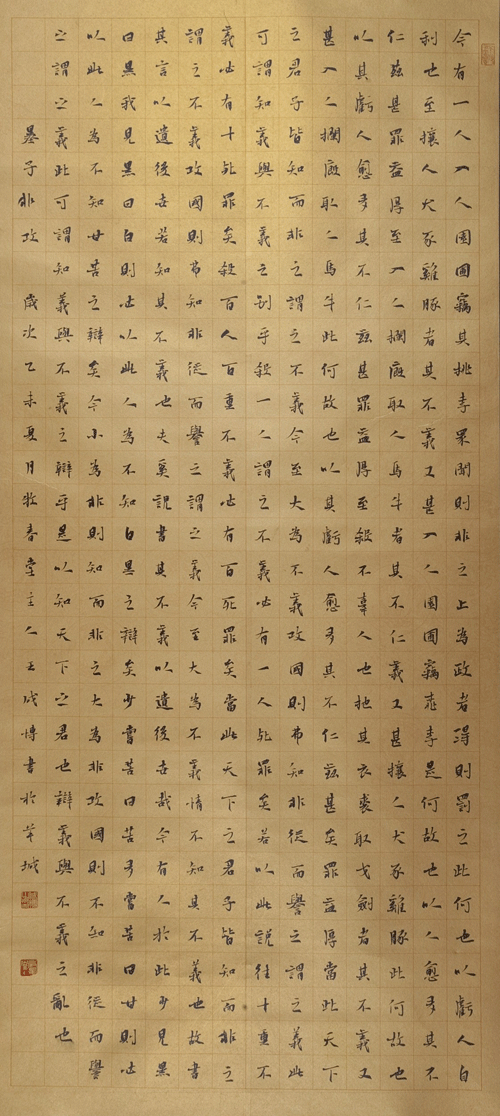 今有一人入人園圃竊其桃李眾聞則非之上為政者得則罰之此何也以虧人自
利也至攘人犬豕雞豚者其不義又甚入人園圃竊桃李是何故也以人愈多其不
仁茲甚罪益厚至入人欄廄取人馬牛者其不仁義又甚攘人犬豕雞豚此何故也
以其虧人愈多其不仁茲甚罪益厚至殺不辜人也扡其衣裘取戈劍者其不義又
甚入人欄廄取人馬牛此何故也以其虧人愈多其不仁茲甚矣罪益厚當此天下
之君子皆知而非之謂之不義今至大為不義攻國則弗知非從而譽之謂之義此
可謂知義與不義之別乎殺一人謂之不義必有一人死罪矣若以此說往十重不
義必有十死罪矣殺百人百重不義必有百死罪矣當此天下之君子皆知而非之
謂之不義攻國則弗知非從而譽之謂之義今至大為不義情不知其不義也故書
其言以遺後世若知其不義也夫奚說書其不義以遺後世哉今有人於此少見黑
曰黑我見黑曰白則必以此人為不知白黑之辯矣少嘗苦曰苦多嘗苦曰甘則必
以此人為不知甘苦之辯矣今小為非則知而非之大為非攻國則不知非從而譽
之謂之義此可謂知義與不義之辯乎是以知天下之君也辯義與不義之亂也
墨子非攻 歲次乙未夏月牧春堂主人王成博書於城